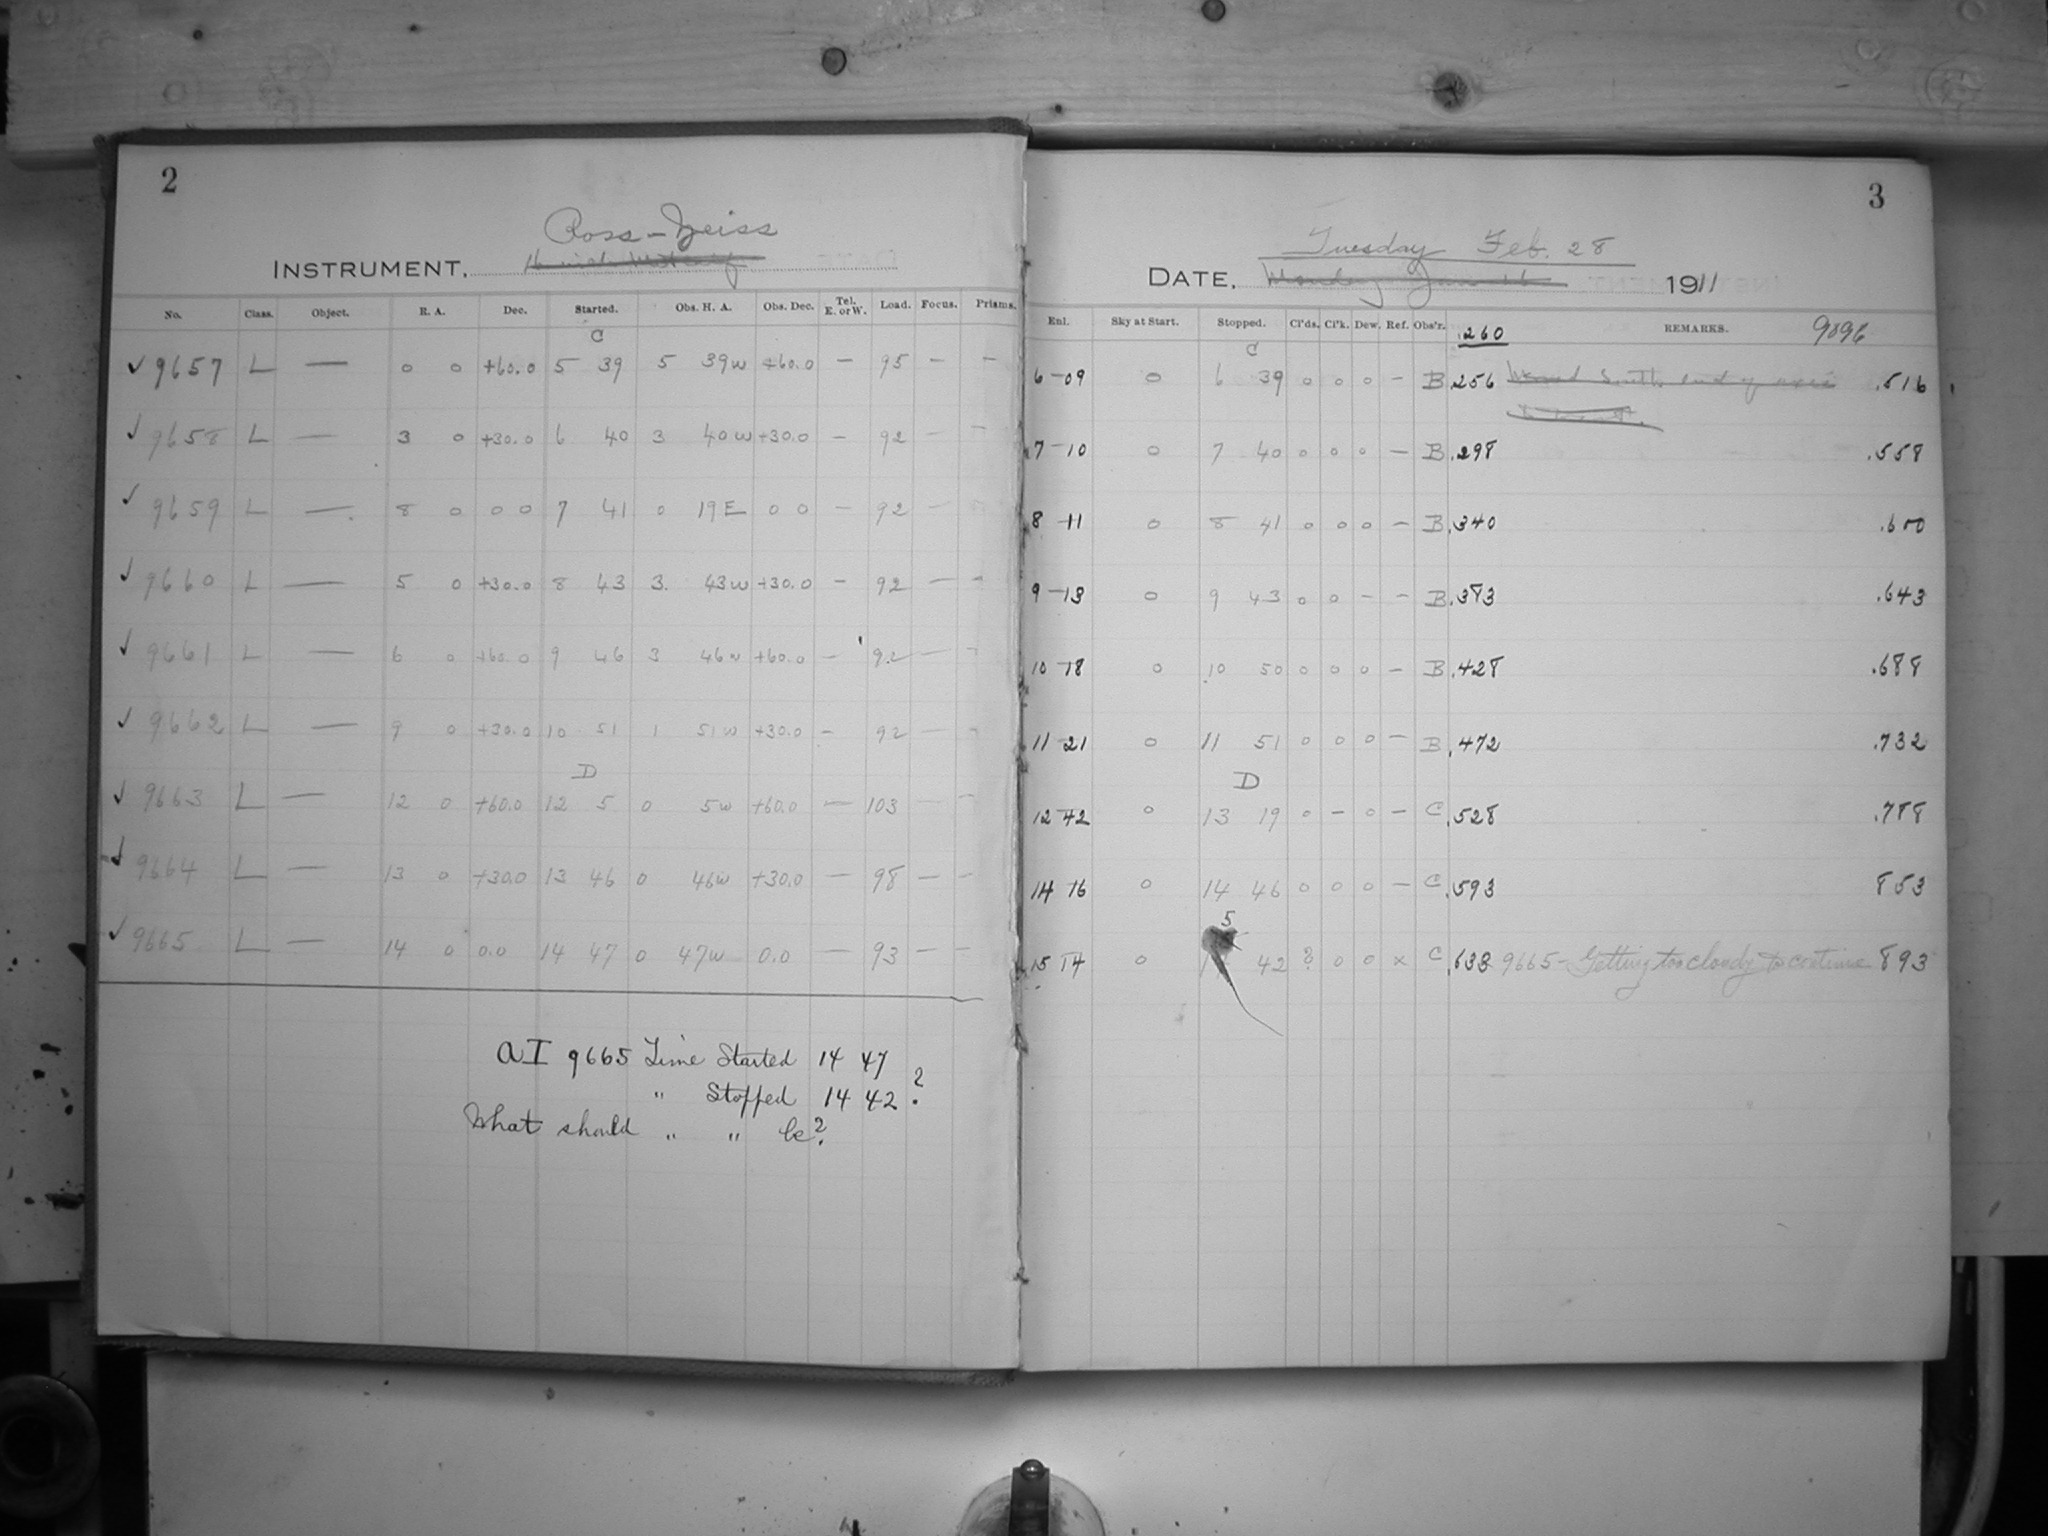 2
Ross-Zeiss
INSTRUMENT, 16 inch Metcalf
No. Class. Object. R. A. Dec. Started. Obs. H. A. Obs. Dec. Tel. E. or W. Load. Focus. Prisms.
C
✓ 9657 L — 0 0 +60.0 5 39 5 39w +60.0 — 95 — —
✓ 9658 L — 3 0 +30.0 6 40 3 40w +30.0 — 92 — —
✓ 9659 L — 8 0 0 0 7 41 0 19E 0 0 — 92 — —
✓ 9660 L — 5 0 +30.0 8 43 3 43w +30.0 — 92 — —
✓ 9661 L — 6 0 +60.0 9 46 3 46w +60.0 — 92 — —
✓ 9662 L — 9 0 +30.0 10 51 1 51w +30.0 — 92 — —
D
✓ 9663 L — 12 0 +60.0 12 5 0 5w +60.0 — 103 — —
✓ 9664 L — 13 0 +30.0 13 46 0 46w +30.0 — 98 — —
✓ 9665 L — 14 0 0.0 14 47 0 47w 0.0 — 93 — —
AI 9665 Time Started 14 47
" Stopped 14 42 ?
What should " " be?
3
Tuesday Feb. 28
DATE, Monday 1911
Enl. Sky at Start. Stopped. Cl'ds. Cl'k. Dew. Ref. Obs'r. .260 REMARKS. 9096
C
6-09 0 6 39 0 0 0 — B .256 South end of axis .516
7-10 0 7 40 0 0 0 — B .298 .558
8-11 0 8 41 0 0 0 — B .340 .600
9-13 0 9 43 0 0 — — B .383 .643
10-18 0 10 50 0 0 0 — B .428 .688
11-21 0 11 51 0 0 0 — B .472 .732
D
12-42 0 13 19 0 — 0 — C .528 .788
14-16 0 14 46 0 0 0 — C .593 853
5
15-14 0 1 42 ? 0 0 x C .633 9665-Getting too cloudy to continue 893